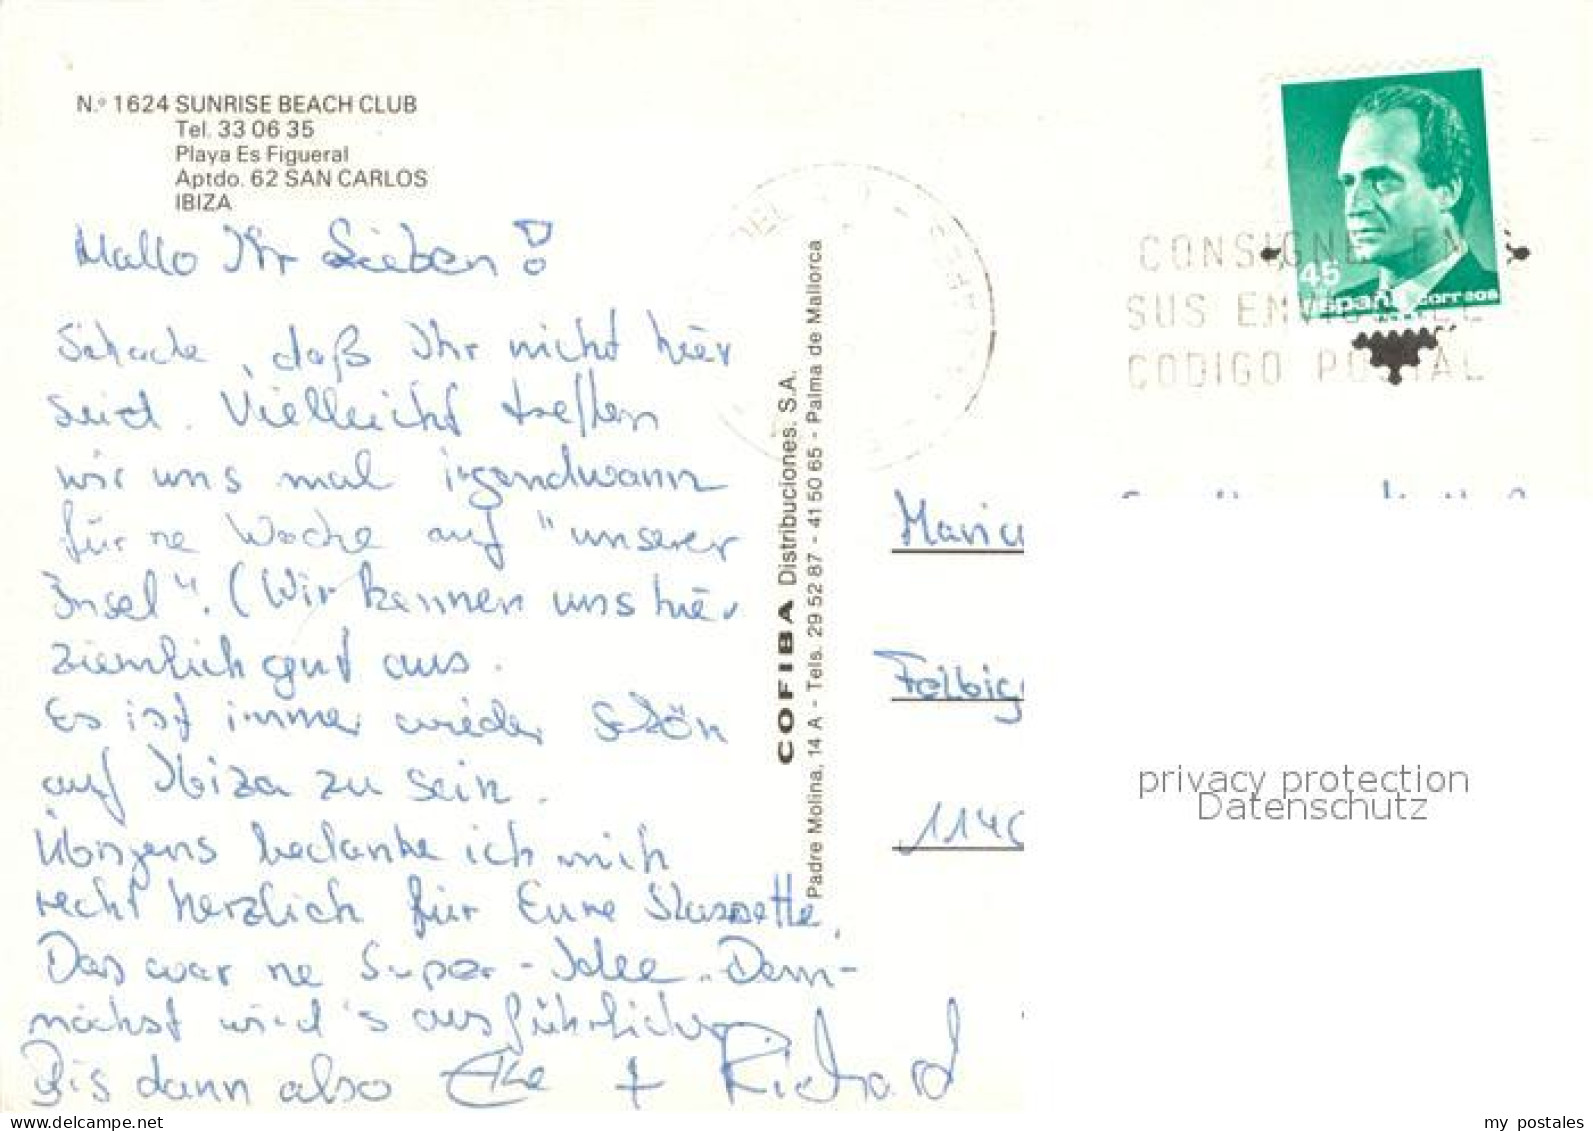 N.º 1624 SUNRISE BEACH CLUB
Tel. 33 06 35
Playa Es Figueral
Aptdo. 62 SAN CARLOS
IBIZA
Hallo Ihr Lieben!
Schade, daß Ihr nicht hier
seid. Vielleicht treffen
wir uns mal irgendwann
für ne Woche auf "unserer
Insel". (Wir kennen uns hier
ziemlich gut aus.
Es ist immer wieder schön
auf Ibiza zu sein.
Übrigens bedanke ich mich
recht herzlich für Eure Kassette.
Das war ne Super-Idee. Dem-
nächst wird's ausführlicher
Bis dann also Elke + Richard
COFIBA Distribuciones, S.A.
Padre Molina, 14 A - Tels. 29 52 87 - 41 50 65 - Palma de Mallorca
45
España correos
CONSIGNE EN
SUS ENVIOS EL
CODIGO POSTAL
privacy protection
Datenschutz
my postales